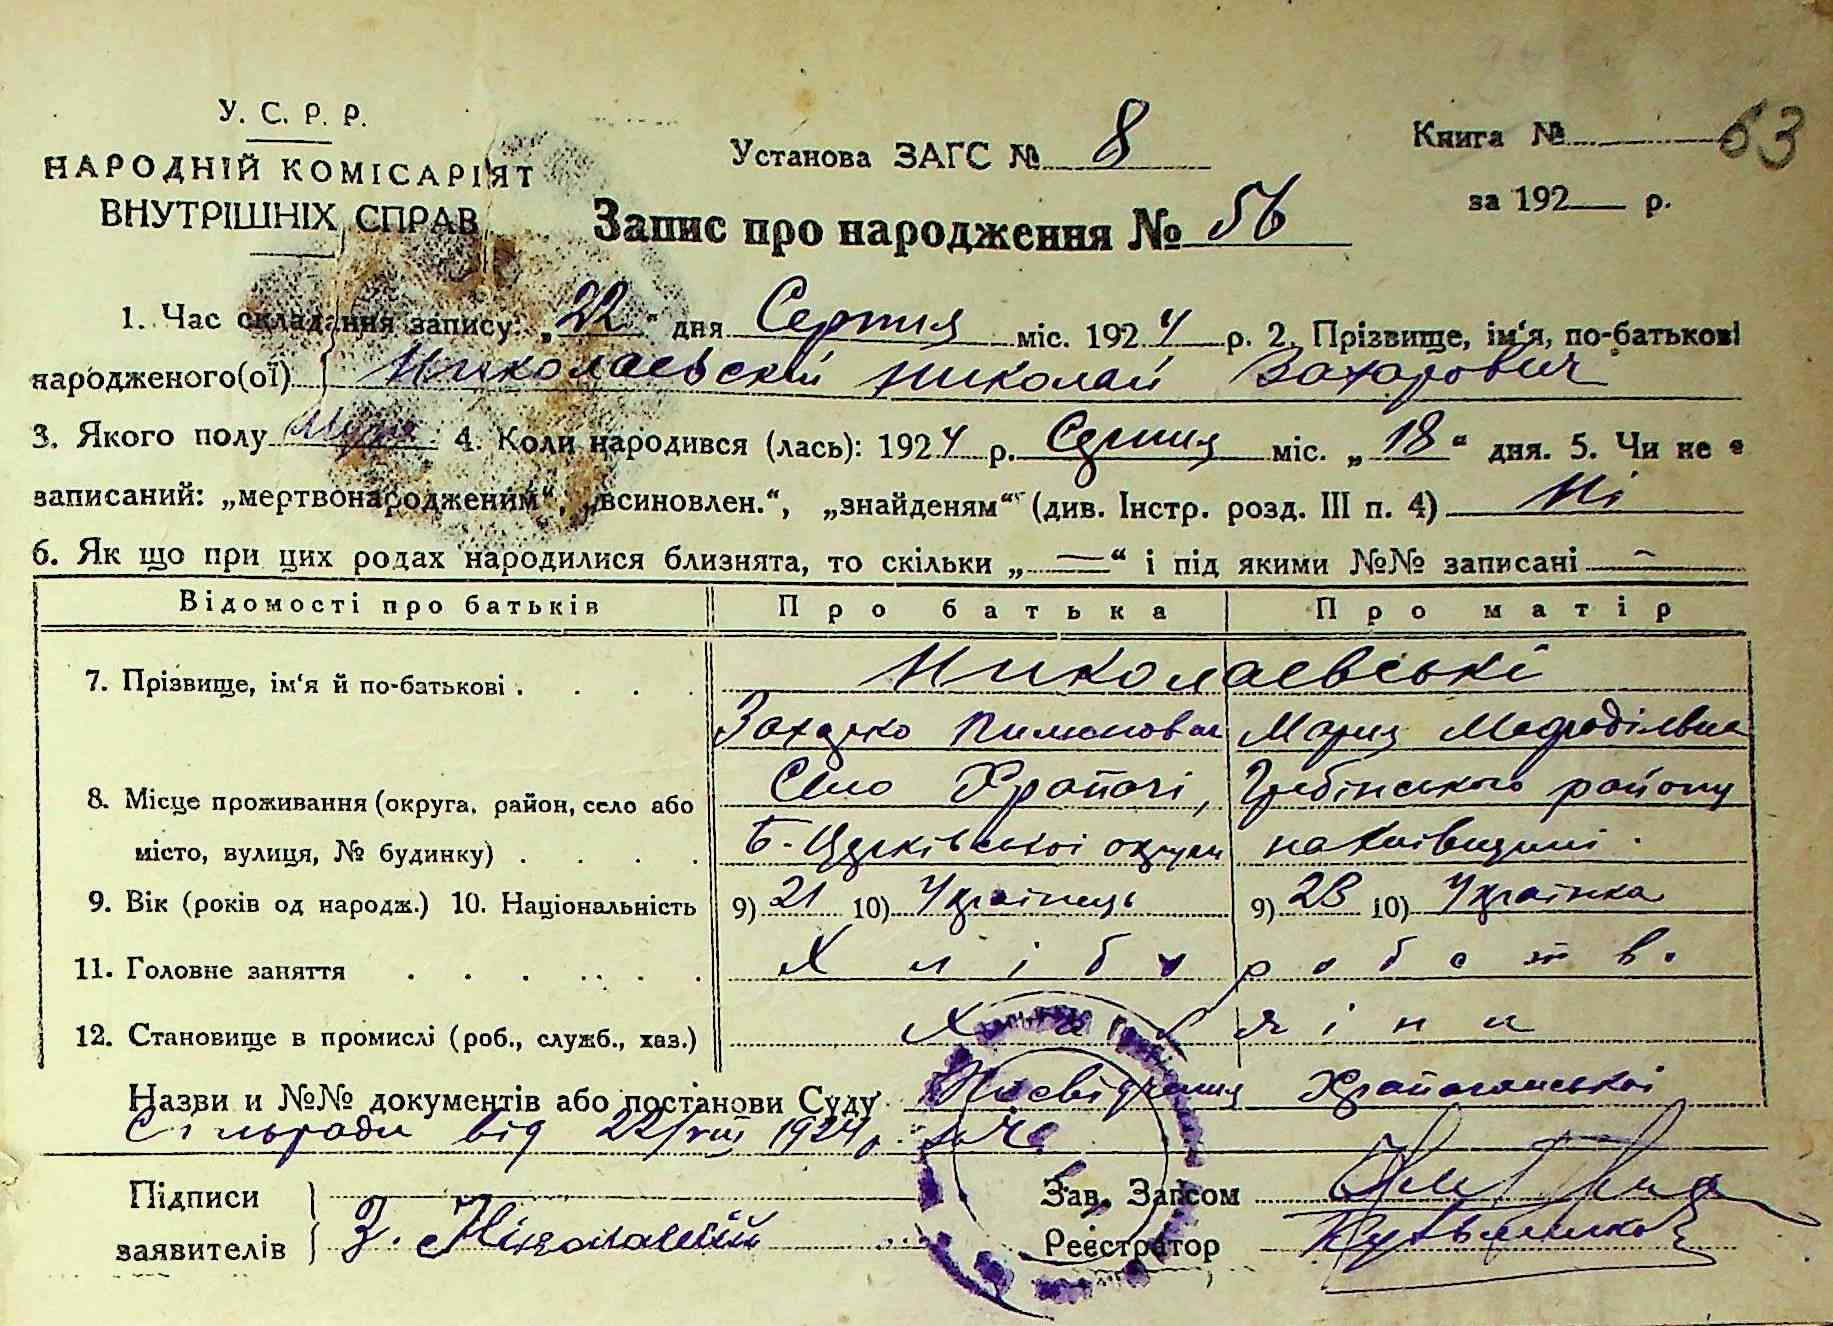 У. С. Р. Р.
НАРОДНІЙ КОМІСАРІЯТ
ВНУТРІШНІХ СПРАВ
Установа ЗАГС № 8
Книга №
63
за 192 р.
Запис про народження № 56
1. Час складання запису: „22“ дня Серпня міс. 1924 р. 2. Прізвище, ім‘я, по-батькові
народженого(ої) Николаевскій Николай Захарович
3. Якого полу 4. Коли народився (лась): 1924 р. Серпня міс. „18“ дня. 5. Чи не є
записаний: „мертвонародженим“, „всиновлен.“, „знайденям“ (див. Інстр. розд. III п. 4) Ні
6. Як що при цих родах народилися близнята, то скільки „—“ і під якими №№ записані —
Відомості про батьків Про батька Про матір
7. Прізвище, ім‘я й по-батькові . . . . Николаевські
Захарко Пимонович Мария Мефодіївна
8. Місце проживання (округа, район, село або Село Храпачі, Гребінського району
місто, вулиця, № будинку) . . . . Б-Церківської округи на Київщині.
9. Вік (років од народж.) 10. Національність 9) 21 10) Українець 9) 23 10) Українка
11. Головне заняття . . . . . . Хліборобств.
12. Становище в промислі (роб., служб., хаз.) Хазяїни
Назви и №№ документів або постанови Суду Посвідчення Храпачанської
Сільради від 22/VIII 1924 р.
Підписи
заявителів З.
Зав. Загсом
Реєстратор